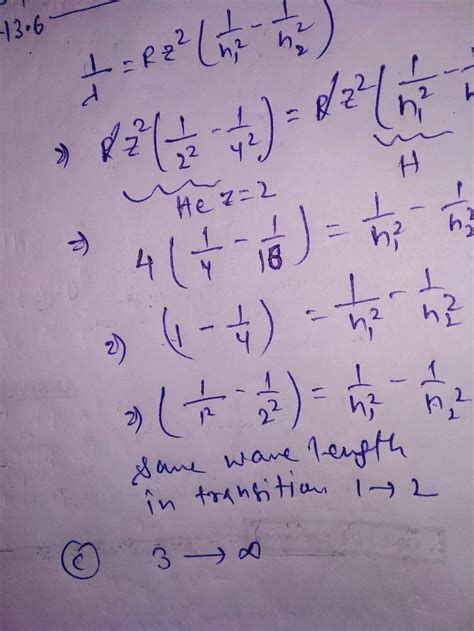 -13.6
1/λ = RZ² (1/n₁² - 1/n₂²)
⇒ RZ² (1/2² - 1/4²) = RZ² (1/n₁² -
He Z=2 H
⇒ 4 (1/4 - 1/16) = 1/n₁² - 1/n₂
⇒ (1 - 1/4) = 1/n₁² - 1/n₂²
⇒ (1/1² - 1/2²) = 1/n₁² - 1/n₂²
same wave length
in transition 1→2
(c) 3 → ∞